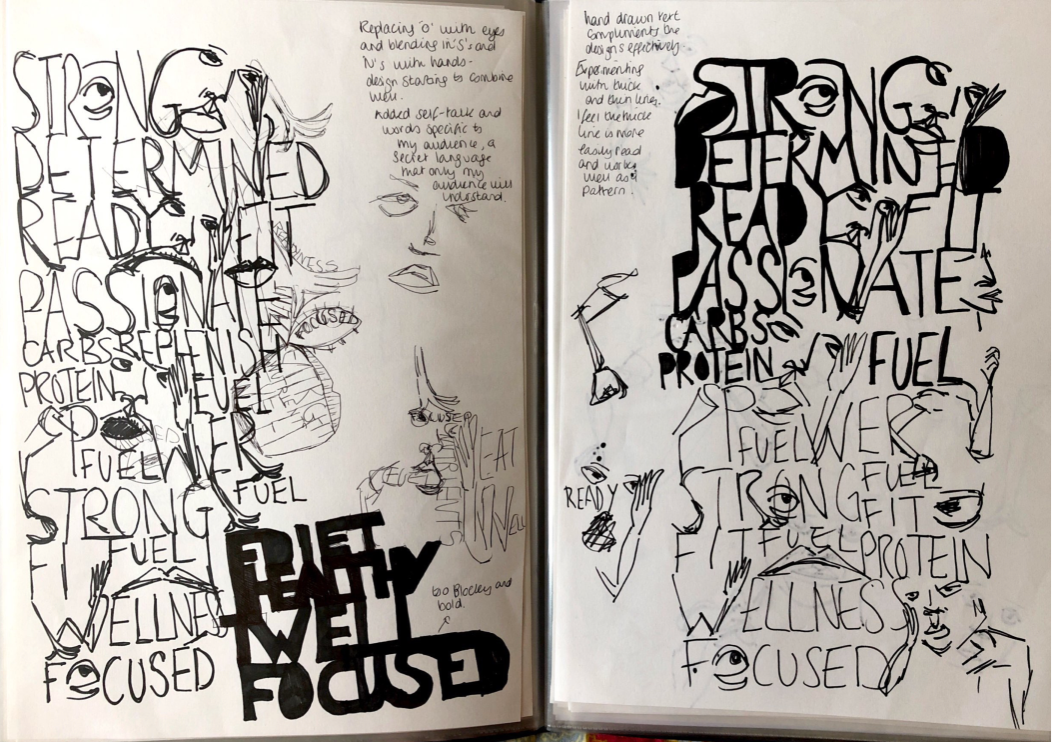 Replacing 'O' with eyes
and blending in 'S's and
N's with hands-
design starting to combine
well.
Added self-talk and
words specific to
my audience, a
secret language
that only my
audience will
understand.
STRONG
DETERMINED
READY FIT
PASSIONATE
CARBS REPLENISH
PROTEIN FUEL
POWER
FUEL
STRONG
FUEL
FIT FUEL
WELLNESS
FOCUSED
FOCUSED
FOCUSED
EAT
WELL
DIET
HEALTHY
WELL
FOCUSED
too blockey and
bold.
hand drawn text
compliments the
design effectively.
Experimenting
with thick
and thin lines.
I feel the thick
line is more
easily read
and works
well as a
pattern.
STRONG
DETERMINED
READY FIT
PASSIONATE
CARBS
PROTEIN FUEL
POWER
FUEL
READY
STRONG FUEL
FIT
FIT FUEL PROTEIN
WELLNESS
FOCUSED